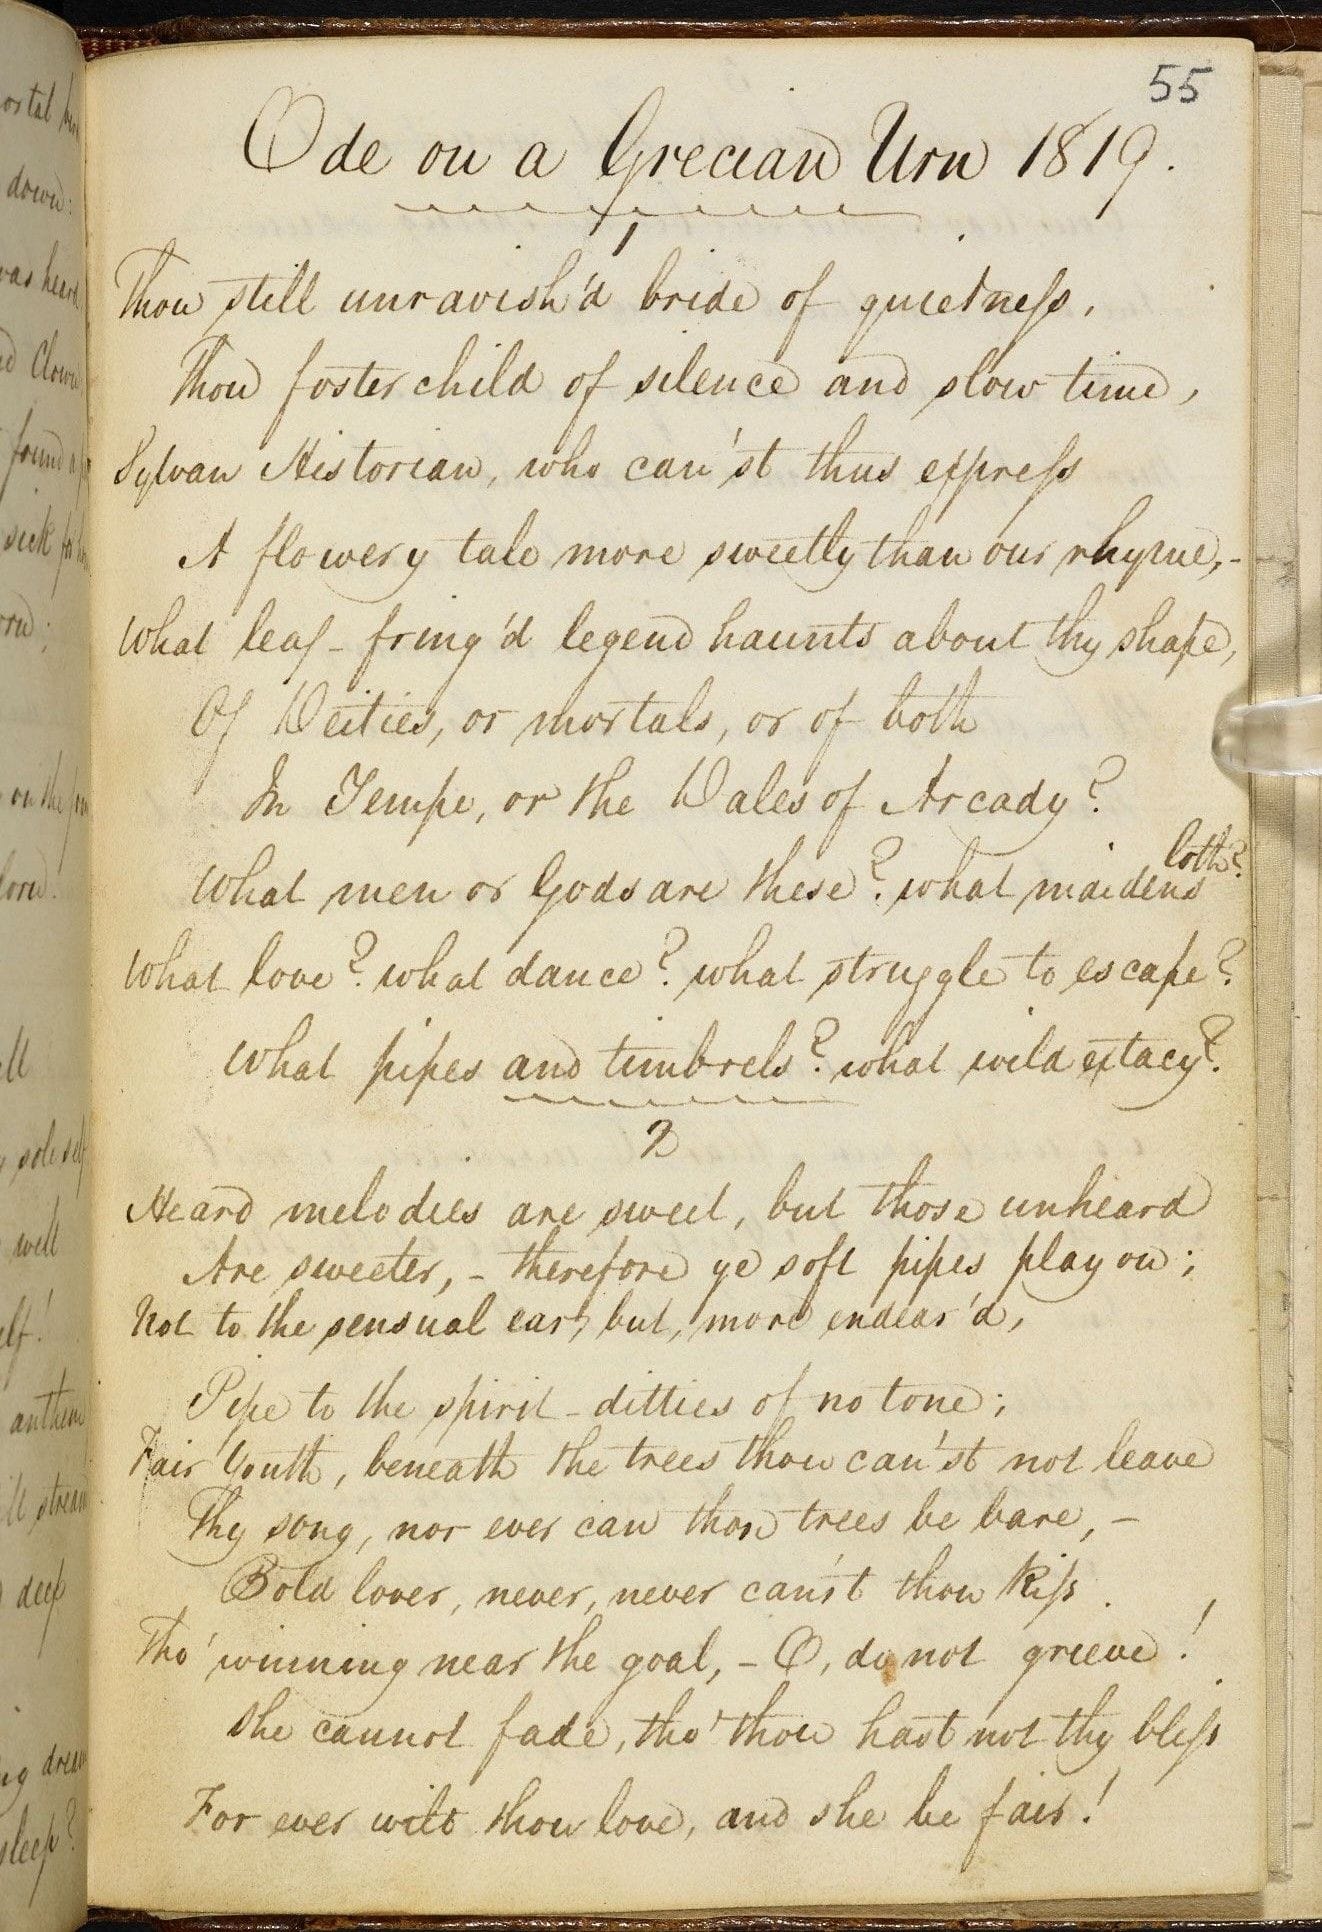 ostal
down:
was heard
Clown
found a
sick for
on the
lorn!
sole self
well
elf!
anthem
stream
deep
dream
sleep?
55
Ode on a Grecian Urn 1819.
1
Thou still unravish'd bride of quietness,
Thou foster child of silence and slow time,
Sylvan Historian, who can'st thus express
A flowery tale more sweetly than our rhyme,-
What leaf-fring'd legend haunts about thy shape,
Of Deities, or mortals, or of both
In Tempe, or the Dales of Arcady?
loth?
What men or Gods are these? what maidens
What love? what dance? what struggle to escape?
What pipes and timbrels? what wild extacy?
2
Heard melodies are sweet, but those unheard
Are sweeter,- therefore ye soft pipes play on;
Not to the sensual ear, but, more endear'd,
Pipe to the spirit - ditties of no tone;
Fair Youth, beneath the trees thou can'st not leave
Thy song, nor ever can those trees be bare,-
Bold lover, never, never can'st thou kiss
Tho' winning near the goal,- O, do not grieve!
She cannot fade, tho' thou hast not thy bless
For ever wilt thou love, and she be fair!